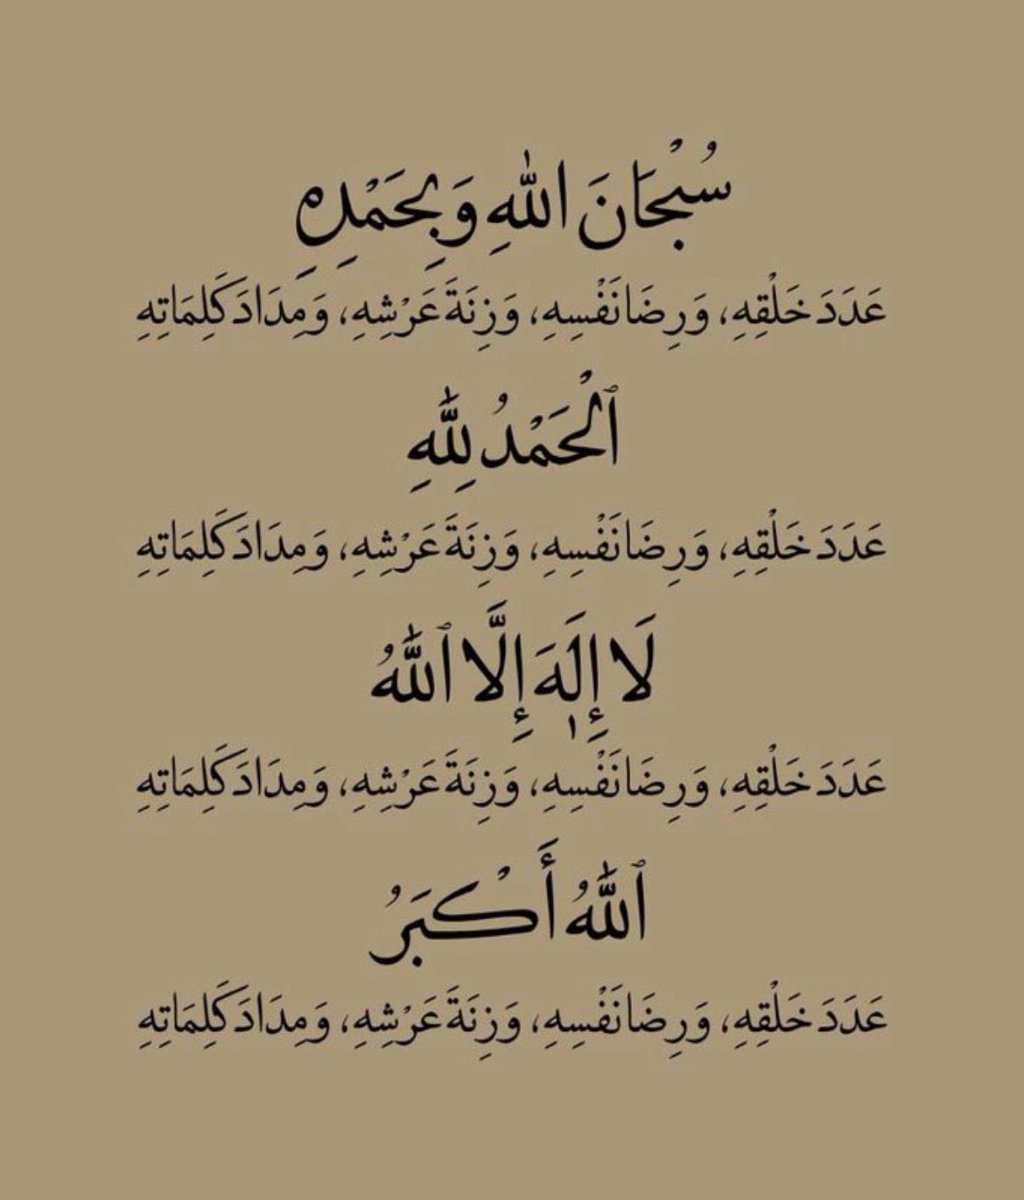 سُبْحَانَ اللهِ وَبِحَمْدِهِ
عَدَدَ خَلْقِهِ، وَرِضَا نَفْسِهِ، وَزِنَةَ عَرْشِهِ، وَمِدَادَ كَلِمَاتِهِ
ٱلْحَمْدُ لِلَّهِ
عَدَدَ خَلْقِهِ، وَرِضَا نَفْسِهِ، وَزِنَةَ عَرْشِهِ، وَمِدَادَ كَلِمَاتِهِ
لَا إِلَٰهَ إِلَّا ٱللَّهُ
عَدَدَ خَلْقِهِ، وَرِضَا نَفْسِهِ، وَزِنَةَ عَرْشِهِ، وَمِدَادَ كَلِمَاتِهِ
ٱللَّهُ أَكْبَرُ
عَدَدَ خَلْقِهِ، وَرِضَا نَفْسِهِ، وَزِنَةَ عَرْشِهِ، وَمِدَادَ كَلِمَاتِهِ